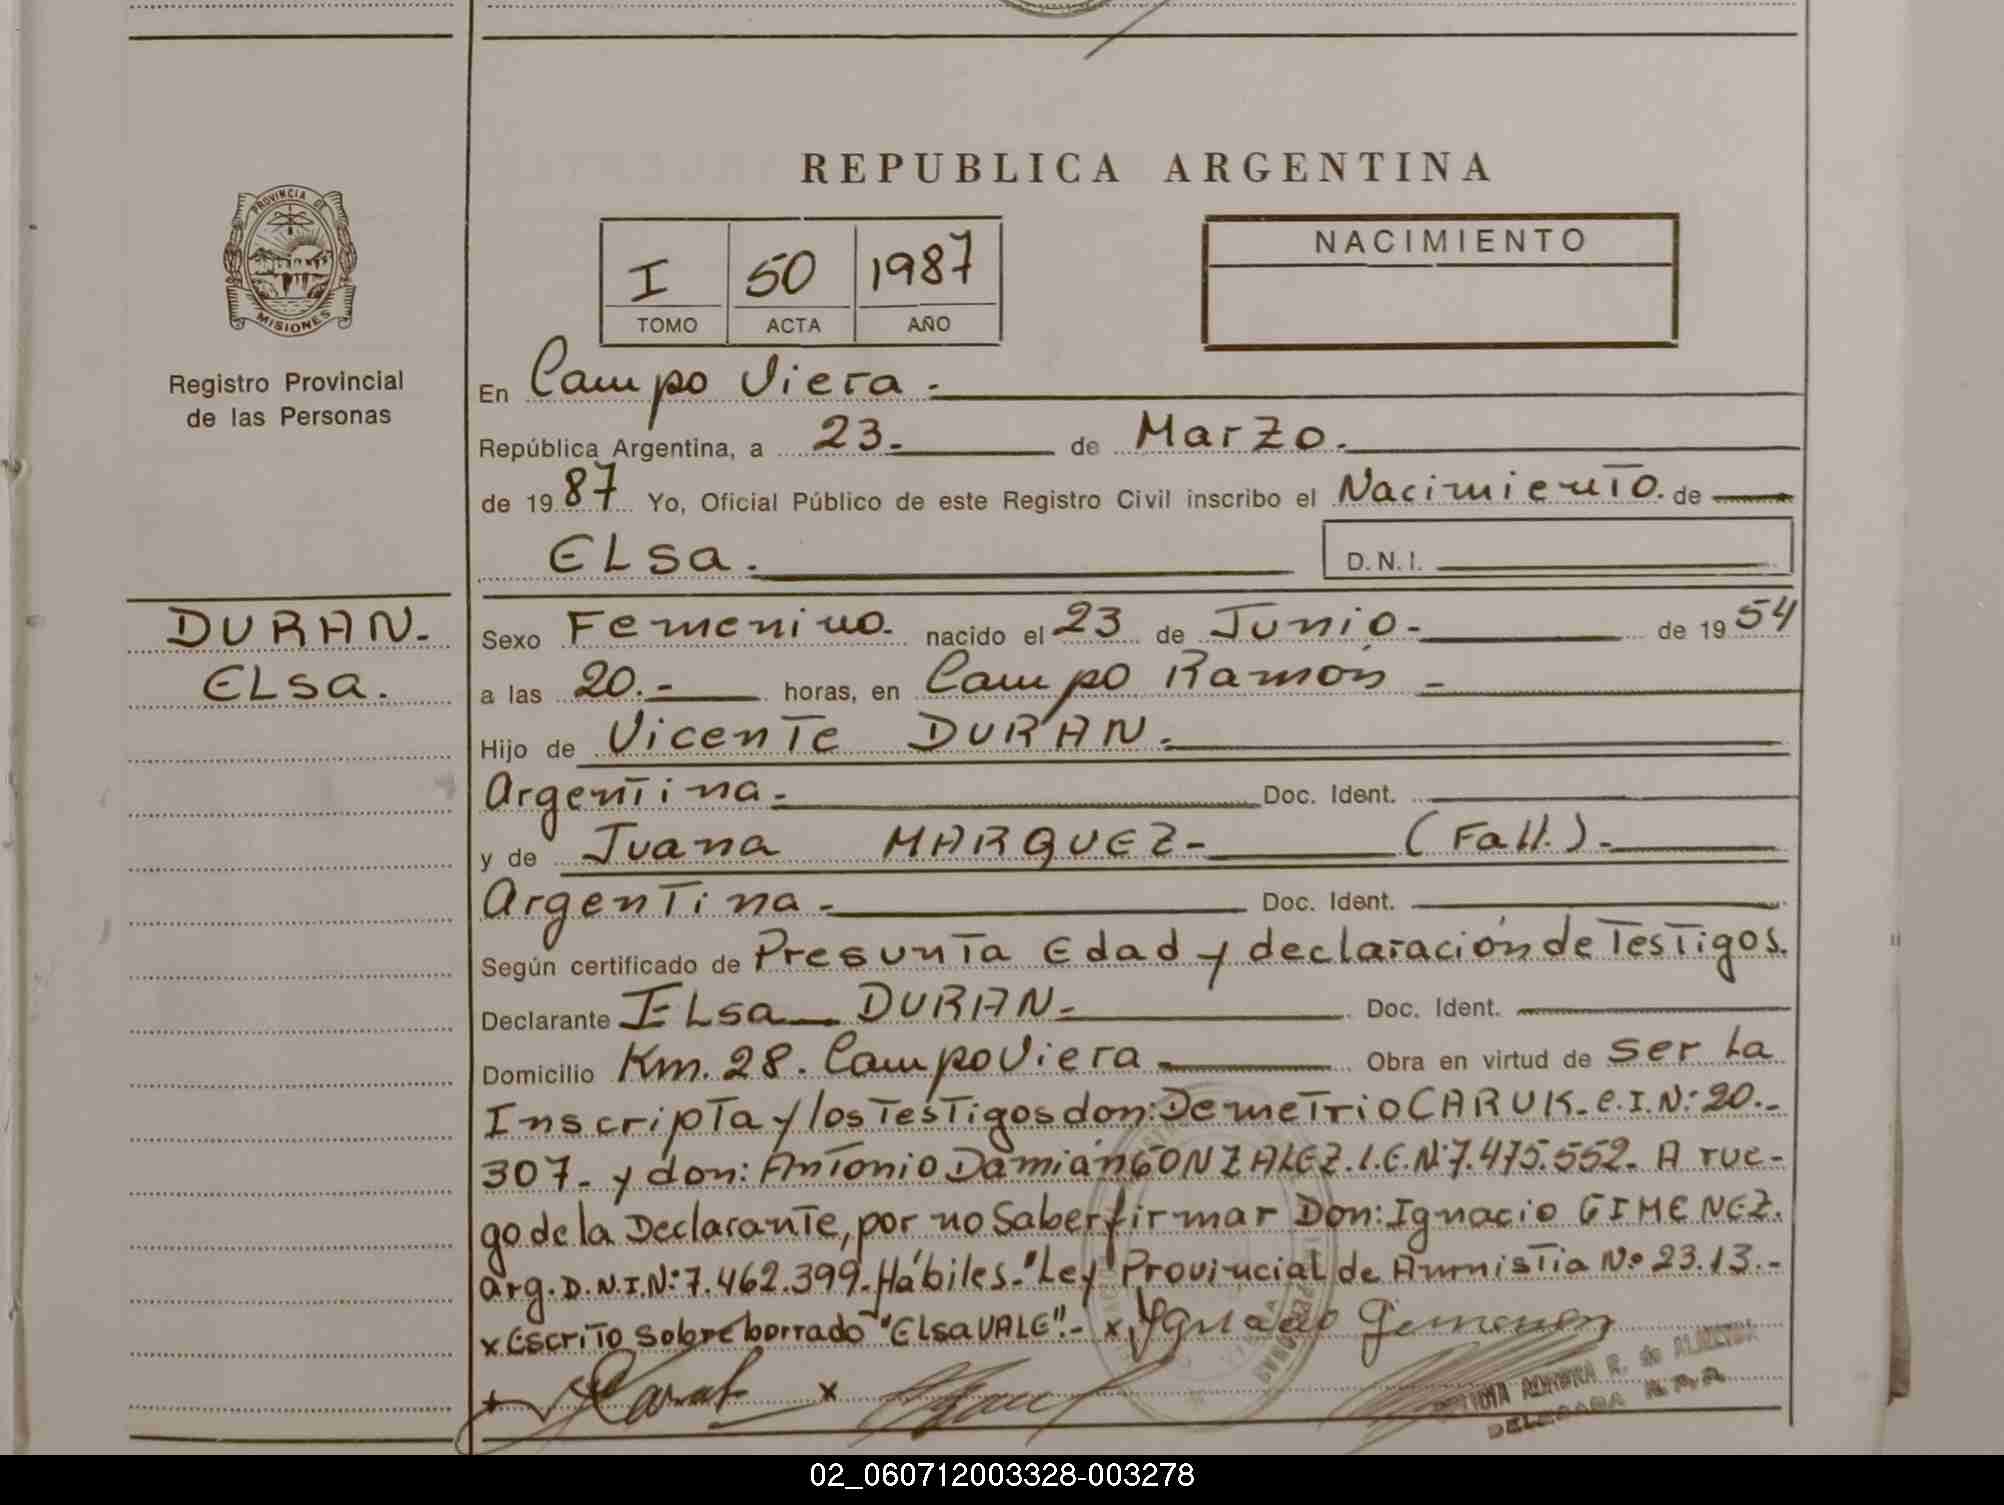 REPUBLICA ARGENTINA
PROVINCIA DE
MISIONES
Registro Provincial
de las Personas
I 50 1987
TOMO ACTA AÑO
NACIMIENTO
En Campo Viera.
República Argentina, a 23.- de Marzo.
de 1987 Yo, Oficial Público de este Registro Civil inscribo el Nacimiento. de
ELsa. D.N.I.
DURAN.-
ELsa.
Sexo Femenino. nacido el 23 de Junio.- de 1954
a las 20.- horas, en Campo Ramón -
Hijo de Vicente DURAN.-
Argentina.- Doc. Ident.
y de Juana MARQUEZ- (Fall.).-
Argentina.- Doc. Ident.
Según certificado de Presunta Edad y declaración de Testigos.
Declarante ELsa DURAN.- Doc. Ident.
Domicilio Km. 28. Campo Viera Obra en virtud de ser la
Inscripta y los Testigos don: Demetrio CARUK. C.I.N: 20.-
307.- y don: Antonio Damián GONZALEZ. L.E.N: 7.475.552.- A rue-
go de la Declarante, por no Saber firmar Don: Ignacio GIMENEZ.
arg. D.N.I.N: 7.462.399.- Hábiles.- "Ley Provincial de Amnistia Nº 23.13.-
x Escrito sobre borrado "ELsa VALE".- x Ignacio Gimenez
x x
R. de ALMEIDA
DELEGADA R.P.P.
02_060712003328-003278